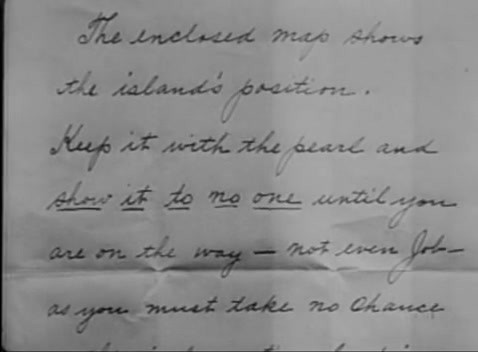 The enclosed map shows
the island's position.
Keep it with the pearl and
show it to no one until you
are on the way — not even Job —
as you must take no chance